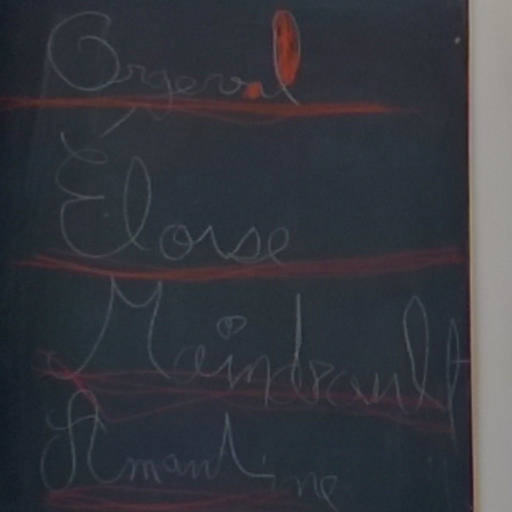 Orgeval
Éloïse
Maindrault
Amantine